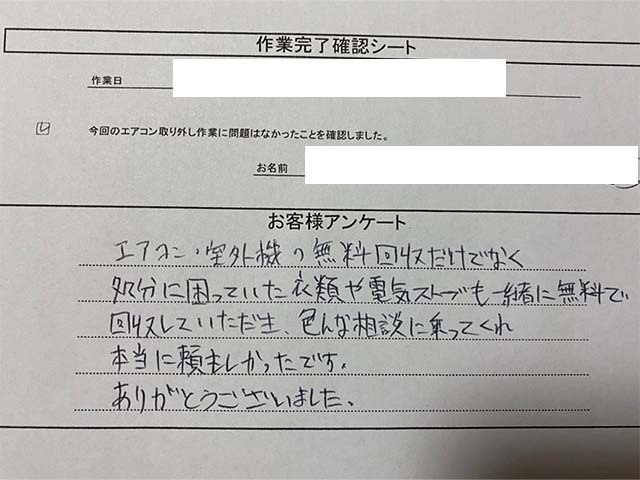 作業完了確認シート
作業日
今回のエアコン取り外し作業に問題はなかったことを確認しました。
お名前
お客様アンケート
エアコン・室外機の無料回収だけでなく
処分に困っていた衣類や電気ストーブも一緒に無料で
回収していただき、色んな相談に乗ってくれ
本当に頼もしかったです。
ありがとうございました。